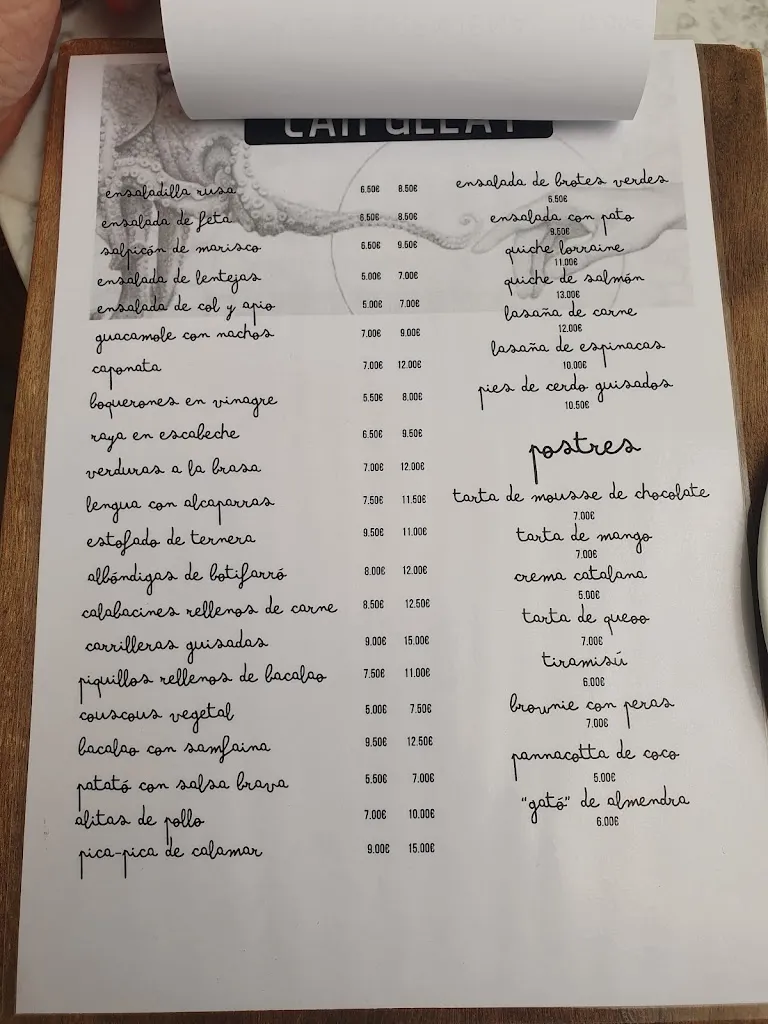 ensaladilla rusa 6.50€ 8.50€
ensalada de feta 6.50€ 8.50€
salpicón de marisco 6.50€ 9.50€
ensalada de lentejas 5.00€ 7.00€
ensalada de col y apio 5.00€ 7.00€
guacamole con nachos 7.00€ 9.00€
caponata 7.00€ 12.00€
boquerones en vinagre 5.50€ 8.00€
raya en escabeche 6.50€ 9.50€
verduras a la brasa 7.00€ 12.00€
lengua con alcaparras 7.50€ 11.50€
estofado de ternera 9.50€ 11.00€
albóndigas de botifarró 8.00€ 12.00€
calabacines rellenos de carne 8.50€ 12.50€
carrilleras guisadas 9.00€ 15.00€
piquillos rellenos de bacalao 7.50€ 11.00€
couscous vegetal 5.00€ 7.50€
bacalao con samfaina 9.50€ 12.50€
patató con salsa brava 5.50€ 7.00€
alitas de pollo 7.00€ 10.00€
pica-pica de calamar 9.00€ 15.00€
ensalada de brotes verdes
6.50€
ensalada con pato
9.50€
quiche lorraine
11.00€
quiche de salmón
13.00€
lasaña de carne
12.00€
lasaña de espinacas
10.00€
pies de cerdo guisados
10.50€
postres
tarta de mousse de chocolate
7.00€
tarta de mango
7.00€
crema catalana
5.00€
tarta de queso
7.00€
tiramisú
6.00€
brownie con peras
7.00€
pannacotta de coco
5.00€
"gató" de almendra
6.00€